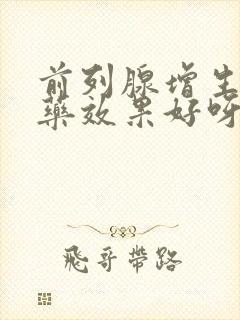 前列腺增生
藥效果好呀
飛哥帶路